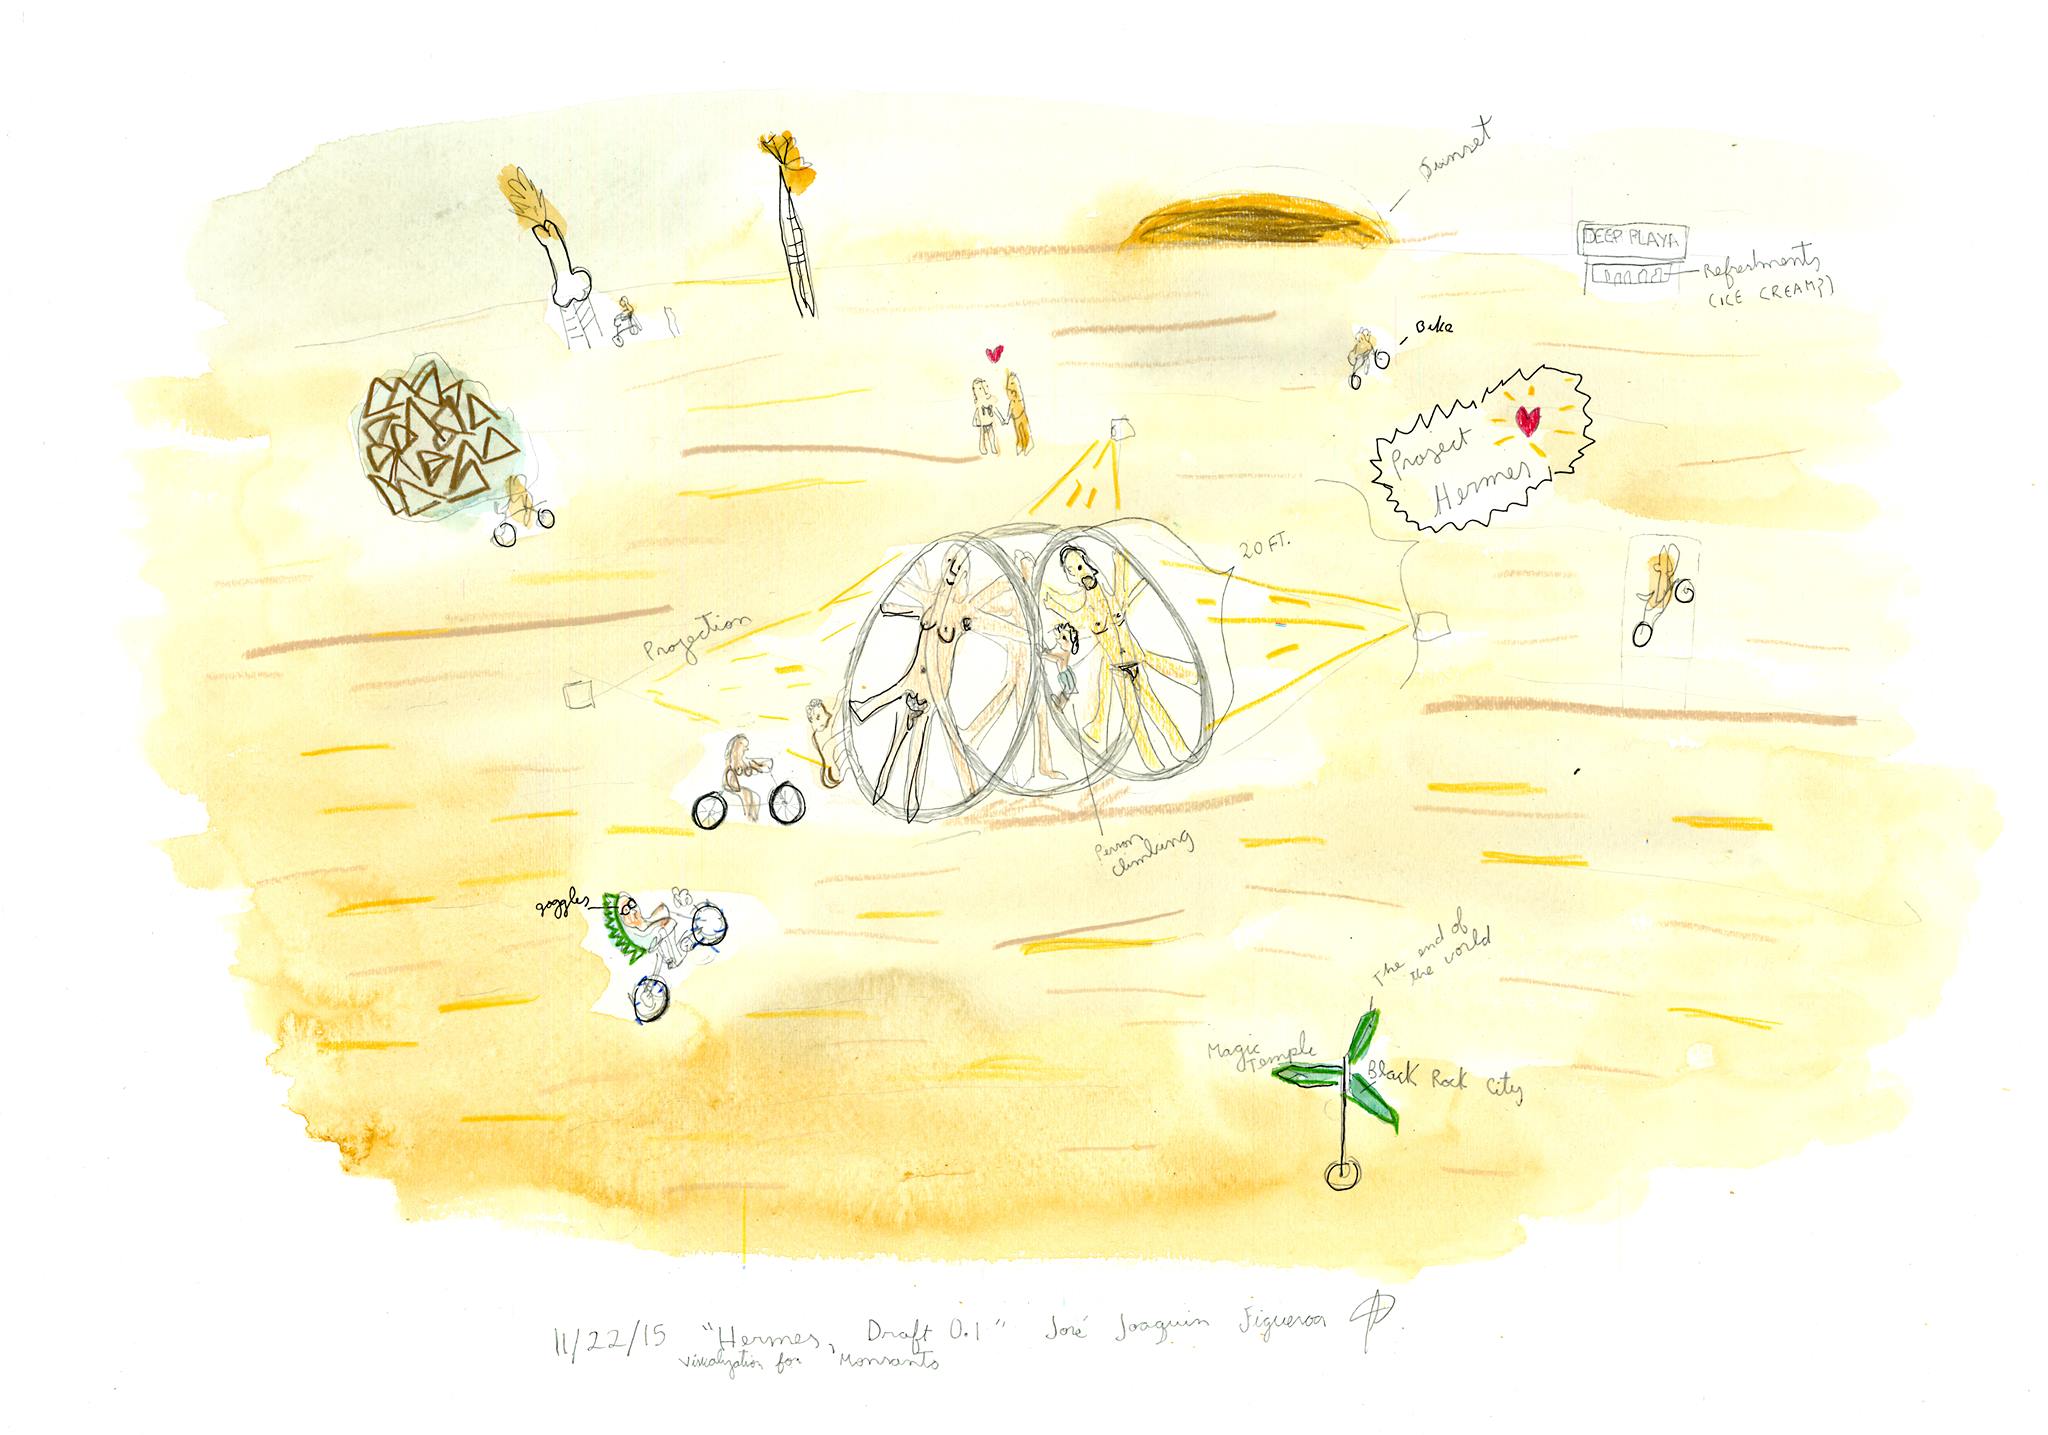 Sunset
DEEP PLAYA
Refreshments
(ICE CREAM?)
Bike
Project
Hermes
20 FT.
Projection
Person
climbing
goggles
The end of
the world
Magic
Temple
Black Rock City
11/22/15 "Hermes, Draft 0.1" José Joaquin Figueroa
Visualization for Monsanto